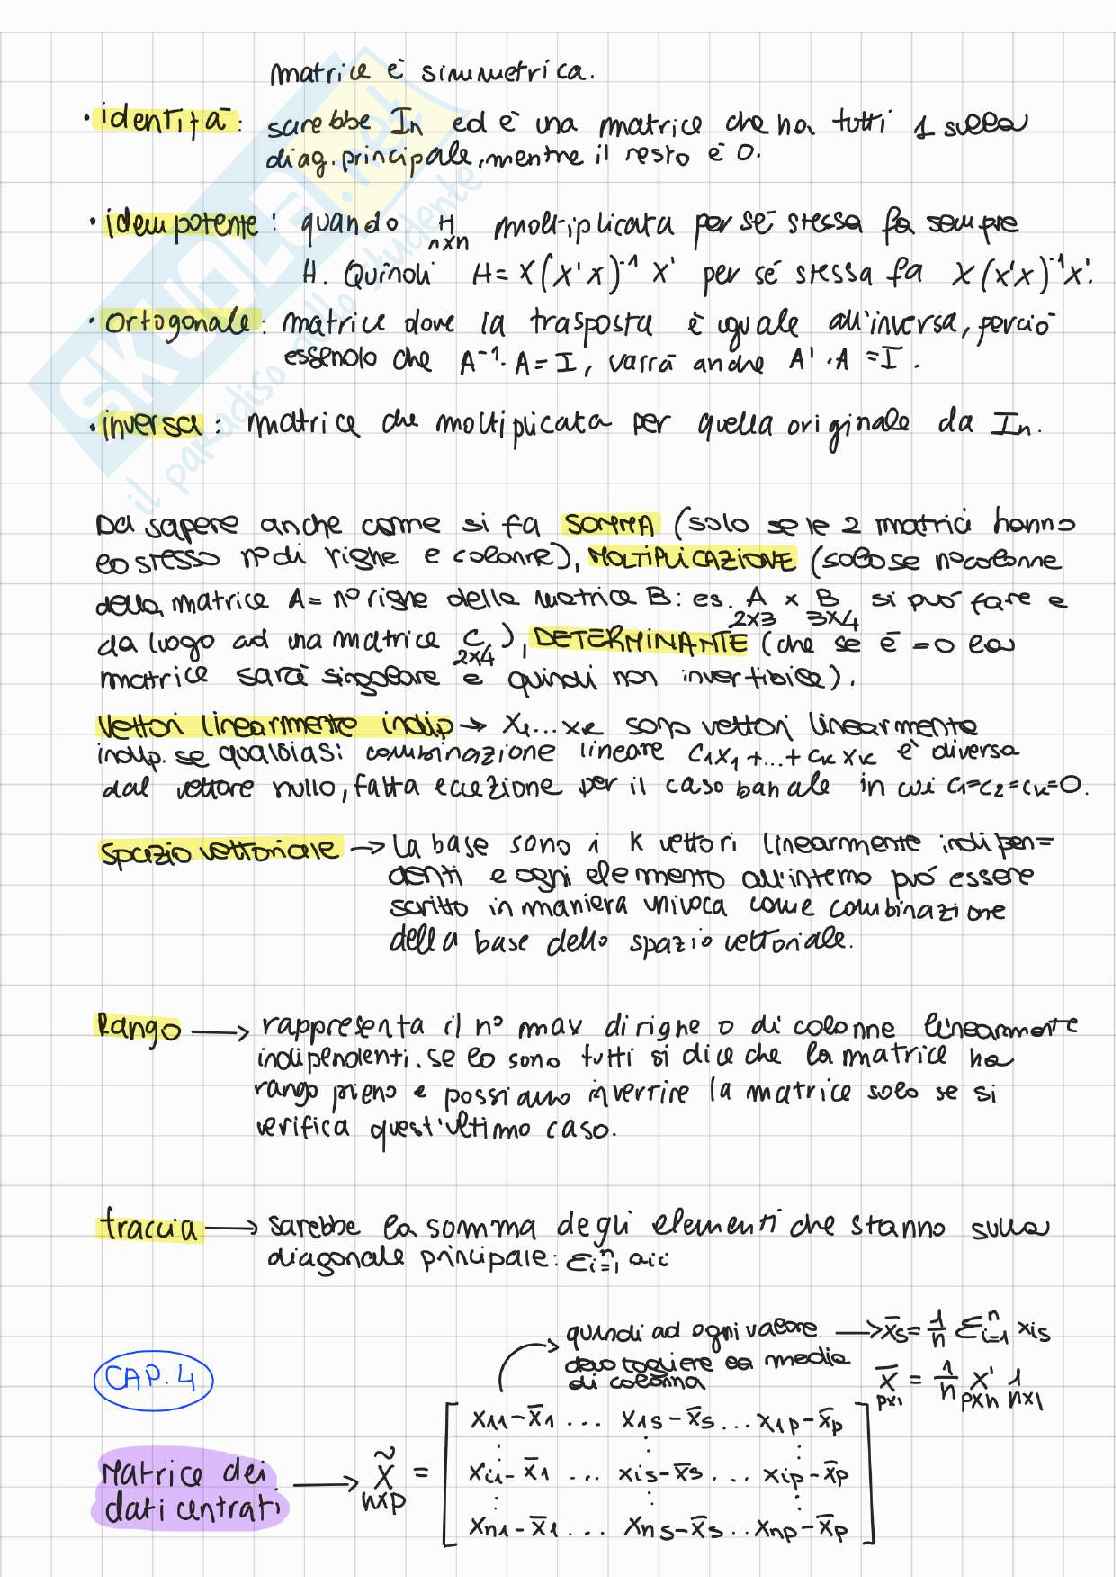 matrice è simmetrica.
· identità: sarebbe In ed è una matrice che ha tutti 1 sulla
diag. principale, mentre il resto è 0.
· idempotente: quando H moltiplicata per sé stessa fa sempre
n×n
H. Quindi H = X(X'X)⁻¹ X' per sé stessa fa X(X'X)⁻¹X'.
· Ortogonale: matrice dove la trasposta è uguale all'inversa, perciò
essendo che A⁻¹· A = I, varrà anche A' · A = I.
· inversa: matrice che moltiplicata per quella originale da In.
Da sapere anche come si fa SOMMA (solo se le 2 matrici hanno
lo stesso n° di righe e colonne), MOLTIPLICAZIONE (solo se n° colonne
della matrice A = n° righe della matrice B: es. A × B si può fare e
2×3 3×4
da luogo ad una matrice C), DETERMINANTE (che se è = 0 la
2×4
matrice sarà singolare e quindi non invertibile).
Vettori linearmente indip → X1...xk sono vettori linearmente
indip. se qualsiasi combinazione lineare c1x1+...+ck xk è diversa
dal vettore nullo, fatta eccezione per il caso banale in cui c1=c2=ck=0.
Spazio vettoriale → La base sono i k vettori linearmente indipen=
denti e ogni elemento all'interno può essere
scritto in maniera univoca come combinazione
della base dello spazio vettoriale.
Rango → rappresenta il n° max di righe o di colonne linearmente
indipendenti. Se lo sono tutti si dice che la matrice ha
rango pieno e possiamo invertire la matrice solo se si
verifica quest'ultimo caso.
traccia → sarebbe la somma degli elementi che stanno sulla
diagonale principale: Σi=1ⁿ aii
quindi ad ogni valore → x̄s = 1/n Σi=1ⁿ xis
devo togliere la media
di colonna
X̄ = 1/n X' 1
p×1 p×n n×1
CAP. 4
Matrice dei
dati centrati → X̃ =
n×p
x11 - x̄1 ... x1s - x̄s ... x1p - x̄p
xi1 - x̄1 ... xis - x̄s ... xip - x̄p
xn1 - x̄1 ... xns - x̄s .. xnp - x̄p
SKUOLA.net
il paradiso dello studente